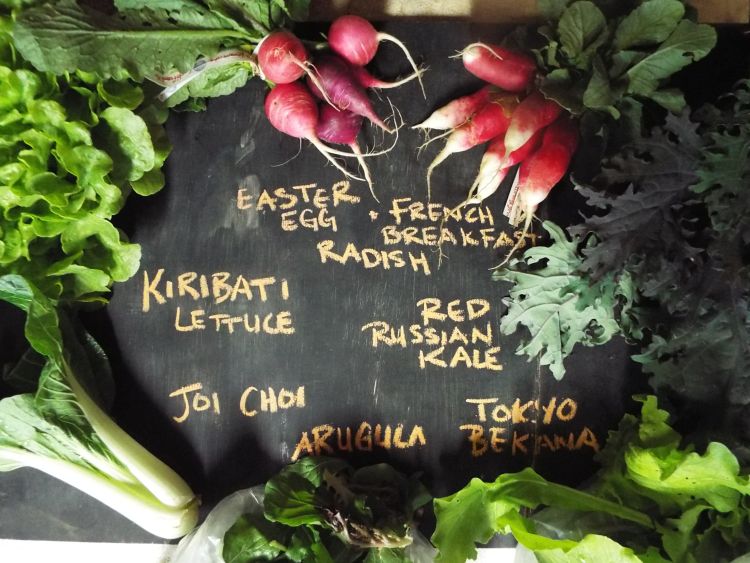 EASTER
EGG • FRENCH
BREAKFAST
RADISH
KIRIBATI
LETTUCE
RED
RUSSIAN
KALE
JOI CHOI
ARUGULA
TOKYO
BEKANA